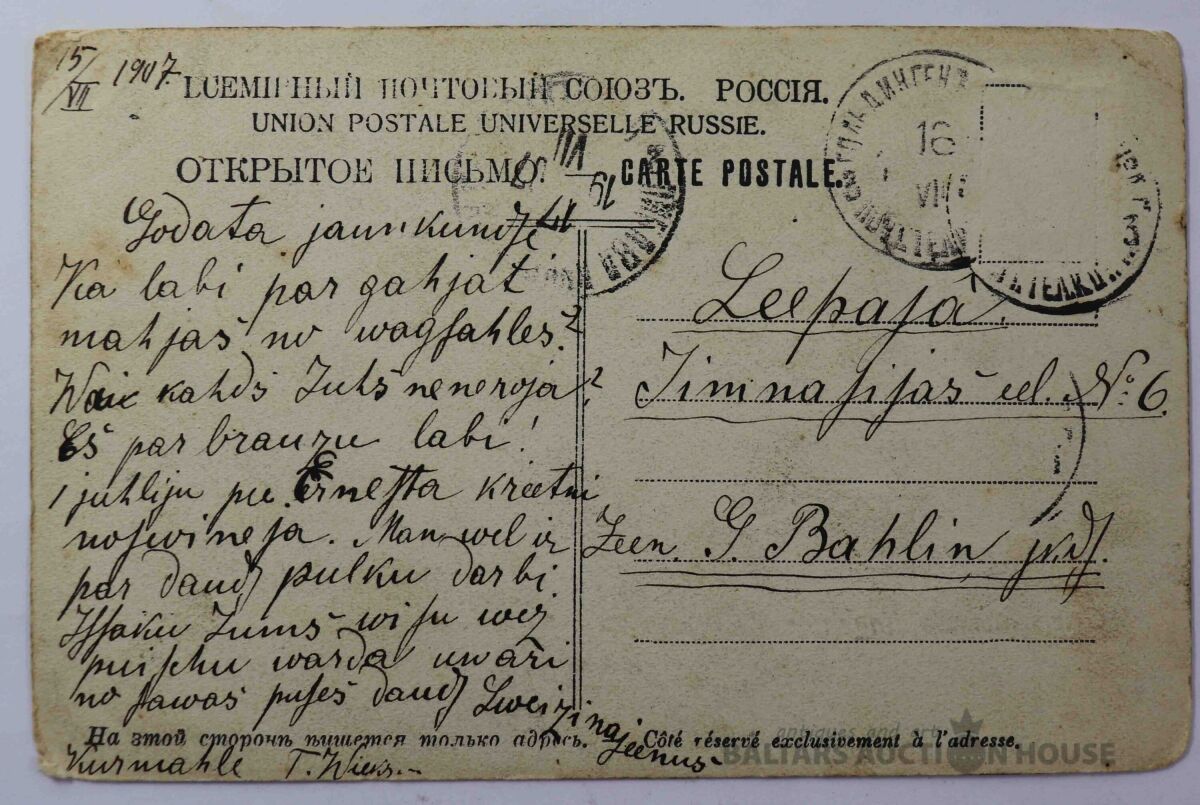 15/VII 1907
ВСЕМІРНЫЙ ПОЧТОВЫЙ СОЮЗЪ. РОССІЯ.
UNION POSTALE UNIVERSELLE RUSSIE.
ОТКРЫТОЕ ПИСЬМО. — CARTE POSTALE.
16
VII
Godata jaunkundſe
Ka labi par gahjat
mahjaš no wagſahles?
Wai kahdš Juhš neneroja?
Eš par brauzu labi!
1 juhliju pee Erneſta kreetni
noſwineja. Man wel ir
par daudſ pulku darbi
Iſſaku Jumš wiſu wez
puiſchu warda
no ſawaš puſeš daudſ Sweizinajeenus
Kurmahle T. Wieks.
Leepaja.
Gimnaſijaš eel. No: 6.
Zeen. G. Bahlin jkdſ.
На этой сторонѣ пишется только адресъ.
Côté réservé exclusivement à l'adresse.
antiques and art
BALTARS AUCTION HOUSE